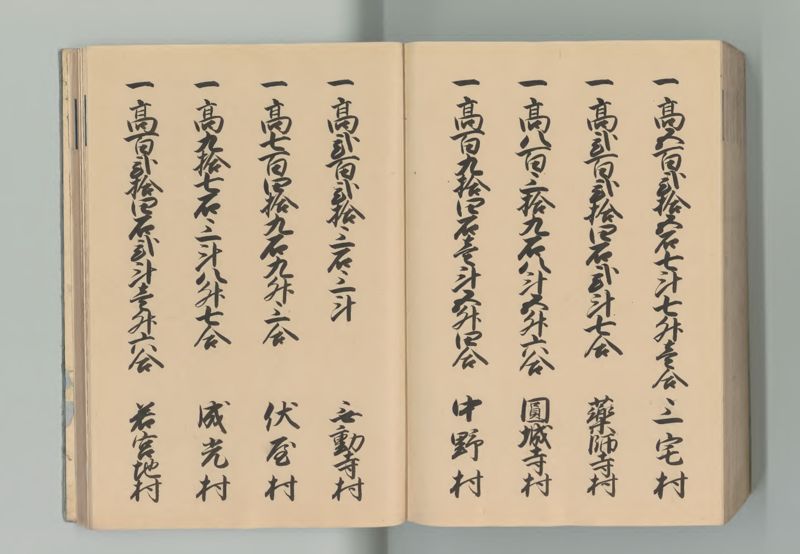 一高六百弐拾六石七斗七升壱合 三宅村
一高弐百弐拾四石弐斗七合 薬師寺村
一高八百三拾九石八斗五升六合 圓城寺村
一高百九拾四石壱斗五升四合 中野村
一高弐百弐拾三石三斗 不動寺村
一高七百四拾九石九升三合 伏屋村
一高九拾七石三斗八升七合 成光村
一高百弐拾四石弐斗壱升六合 若宮地村